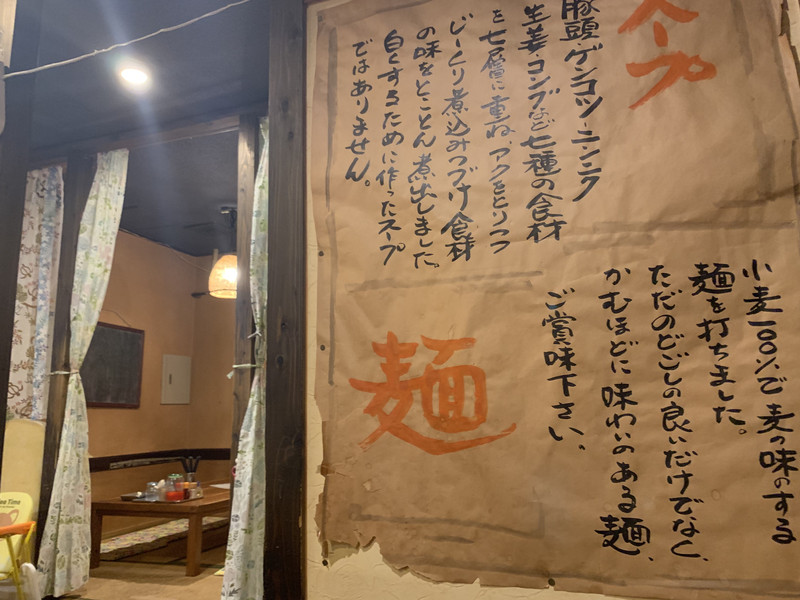 スープ
豚頭・ゲンコツ・ニンニク
生姜・コンブなど七種の食材
を七層に重ね、アクをとりつつ
じーくり煮込みつづけ食材
の味をとことん煮出しました。
白くするために作ったスープ
ではありません。
麺
小麦100%で麦の味のする
麺を打ちました。
ただのどごしの良いだけでなく、
かむほどに味わいのある麺、
ご賞味下さい。
Time